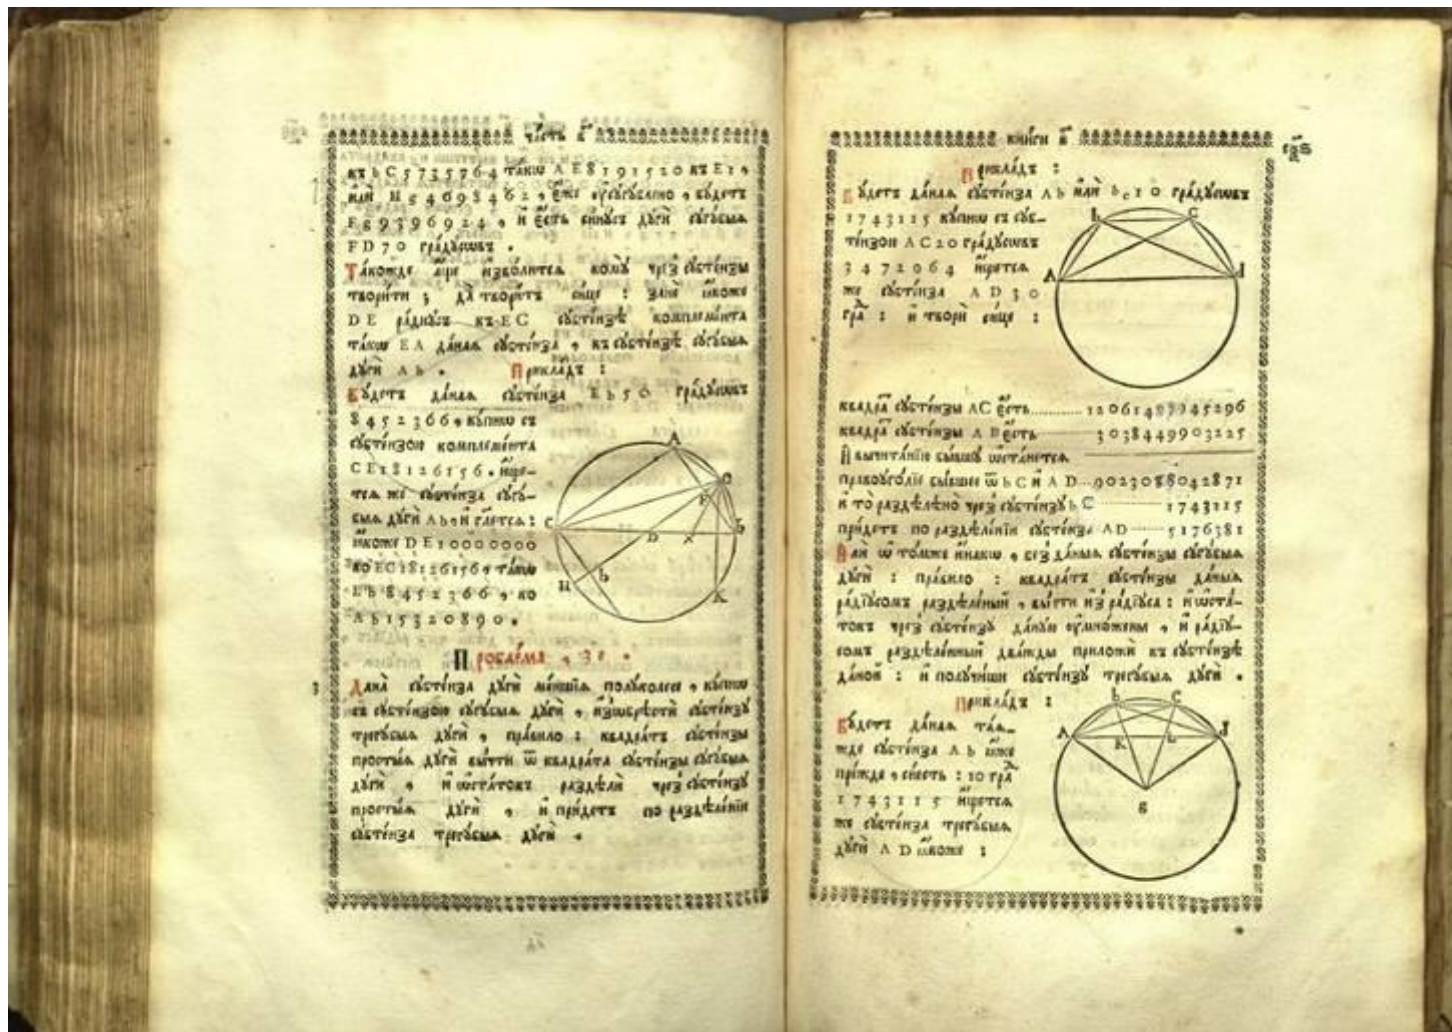 часть в҃
къ bC 5735764 такѡ AE 8191520 къ EI,
или H 54698462, еже усугублено, будетъ
Fg 9396924, и есть сѵнусъ дуги сугубыя
FD 70 градусѡвъ.
Такожде аще изволится кому чрез субтензы
творити ; да творитъ сице : зане якоже
DE радиусъ къ EC субтензѣ комплемента
такѡ EA даная субтенза, къ субтензѣ сугубыя
дуги Ab. Прикладъ :
Будетъ даная субтенза Eb 56 градусѡвъ
8452366, купнѡ съ
субтензою комплемента
CE 18126156. ищет-
ся же субтенза сугу-
быя дуги Ab, и глется :
якоже DE 10000000
ко EC 18126156, такѡ
Eb 8452366, ко
Ab 15320890.
Проблема , ЗІ .
Дана субтенза дуги меншія полуколесе, купнѡ
съ субтензою сугубыя дуги, изѡбрѣсти субтензу
трегубыя дуги, правило : квадратъ субтензы
простыя дуги вычти ѿ квадрата субтензы сугубыя
дуги, и ѡстатокъ раздѣли чрез субтензу
простыя дуги, и прiидетъ по раздѣленіи
субтенза трегубыя дуги.
книги в҃
Прикладъ :
Будетъ даная субтенза Ab или bc 10 градусѡвъ
1743115 купнѡ съ суб-
тензою AC 20 градусѡвъ
3472964 ищется
же субтенза AD 30
гра : и твори сице :
b C
A
квадра субтензы AC есть 12061487945296
квадра субтензы AB есть 3038449903225
И вычитанію бывшу ѡстанется
правоуголіе бывшее ѿ bC и AD 9023088042871
и то раздѣлено чрез субтензу bC 1743115
прiидетъ по раздѣленіи субтенза AD 5176381
Или ѿ тоѧже инакѡ, без даныя субтензы сугубыя
дуги : правило : квадратъ субтензы даныя
радіусомъ раздѣленый, вычти из радіуса : и ѡста-
токъ чрез субтензу даную умножены, и радіу-
сомъ раздѣленный дважды приложи къ субтензѣ
даной : и получиши субтензу трегубыя дуги.
Прикладъ :
Будетъ даная тая-
жде субтенза Ab яже
прежде, сиесть : 10 гра
1743115 ищется
же субтенза трегубыя
дуги AD якоже :
b C
A